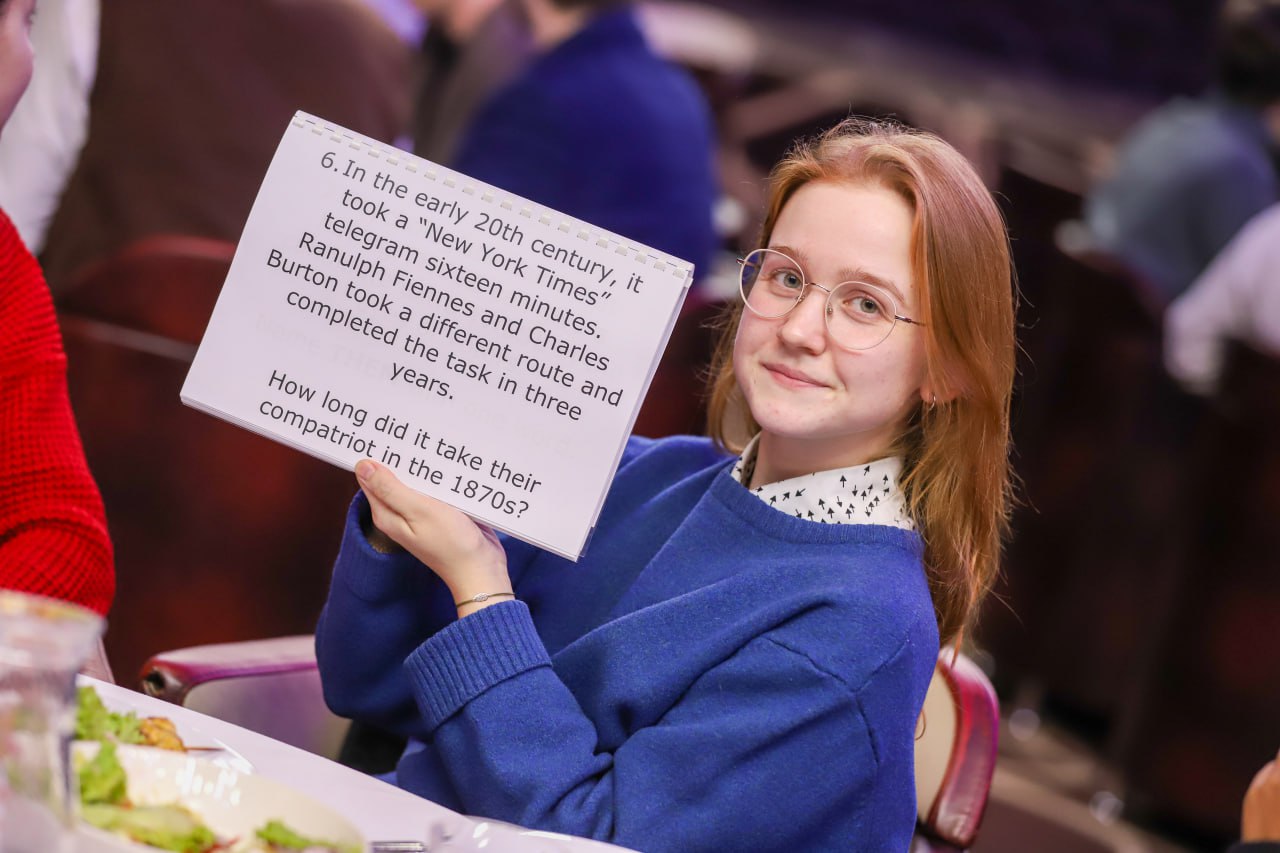 6. In the early 20th century, it
took a “New York Times”
telegram sixteen minutes.
Ranulph Fiennes and Charles
Burton took a different route and
completed the task in three
years.
How long did it take their
compatriot in the 1870s?